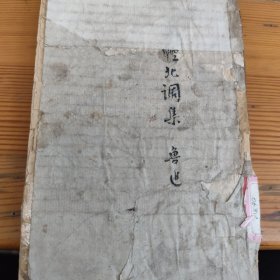 腔北调集 鲁迅